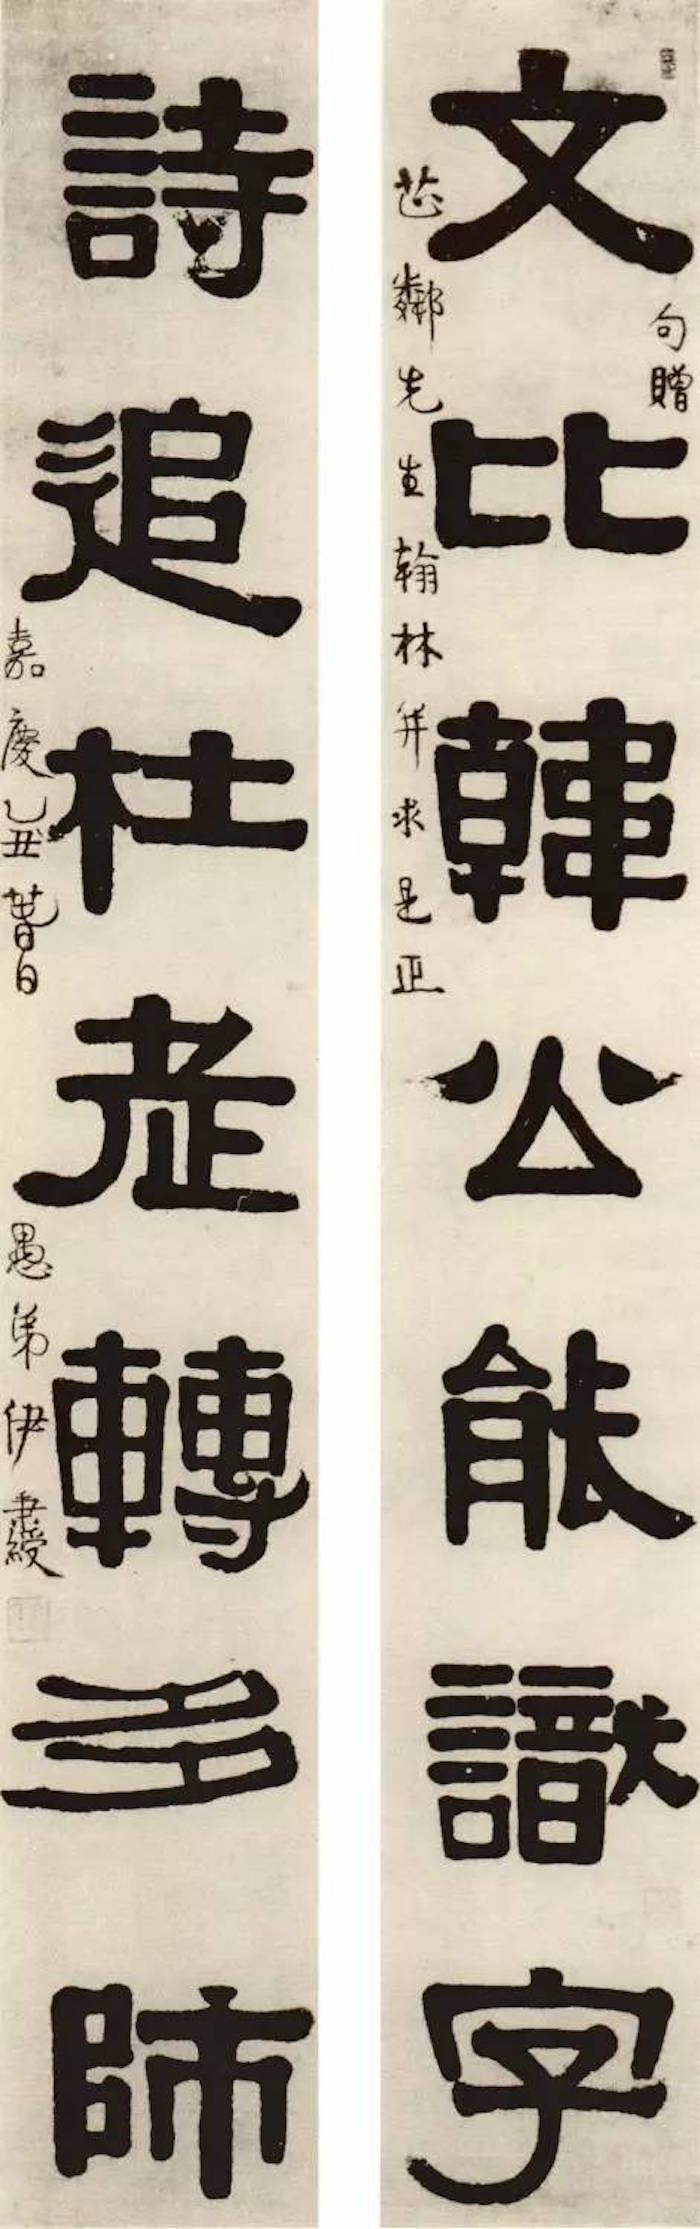 句贈
文比韓公能識字
芷鄰先生翰林并求是正
詩追杜老轉多師
嘉慶乙丑春日
愚弟伊秉綬